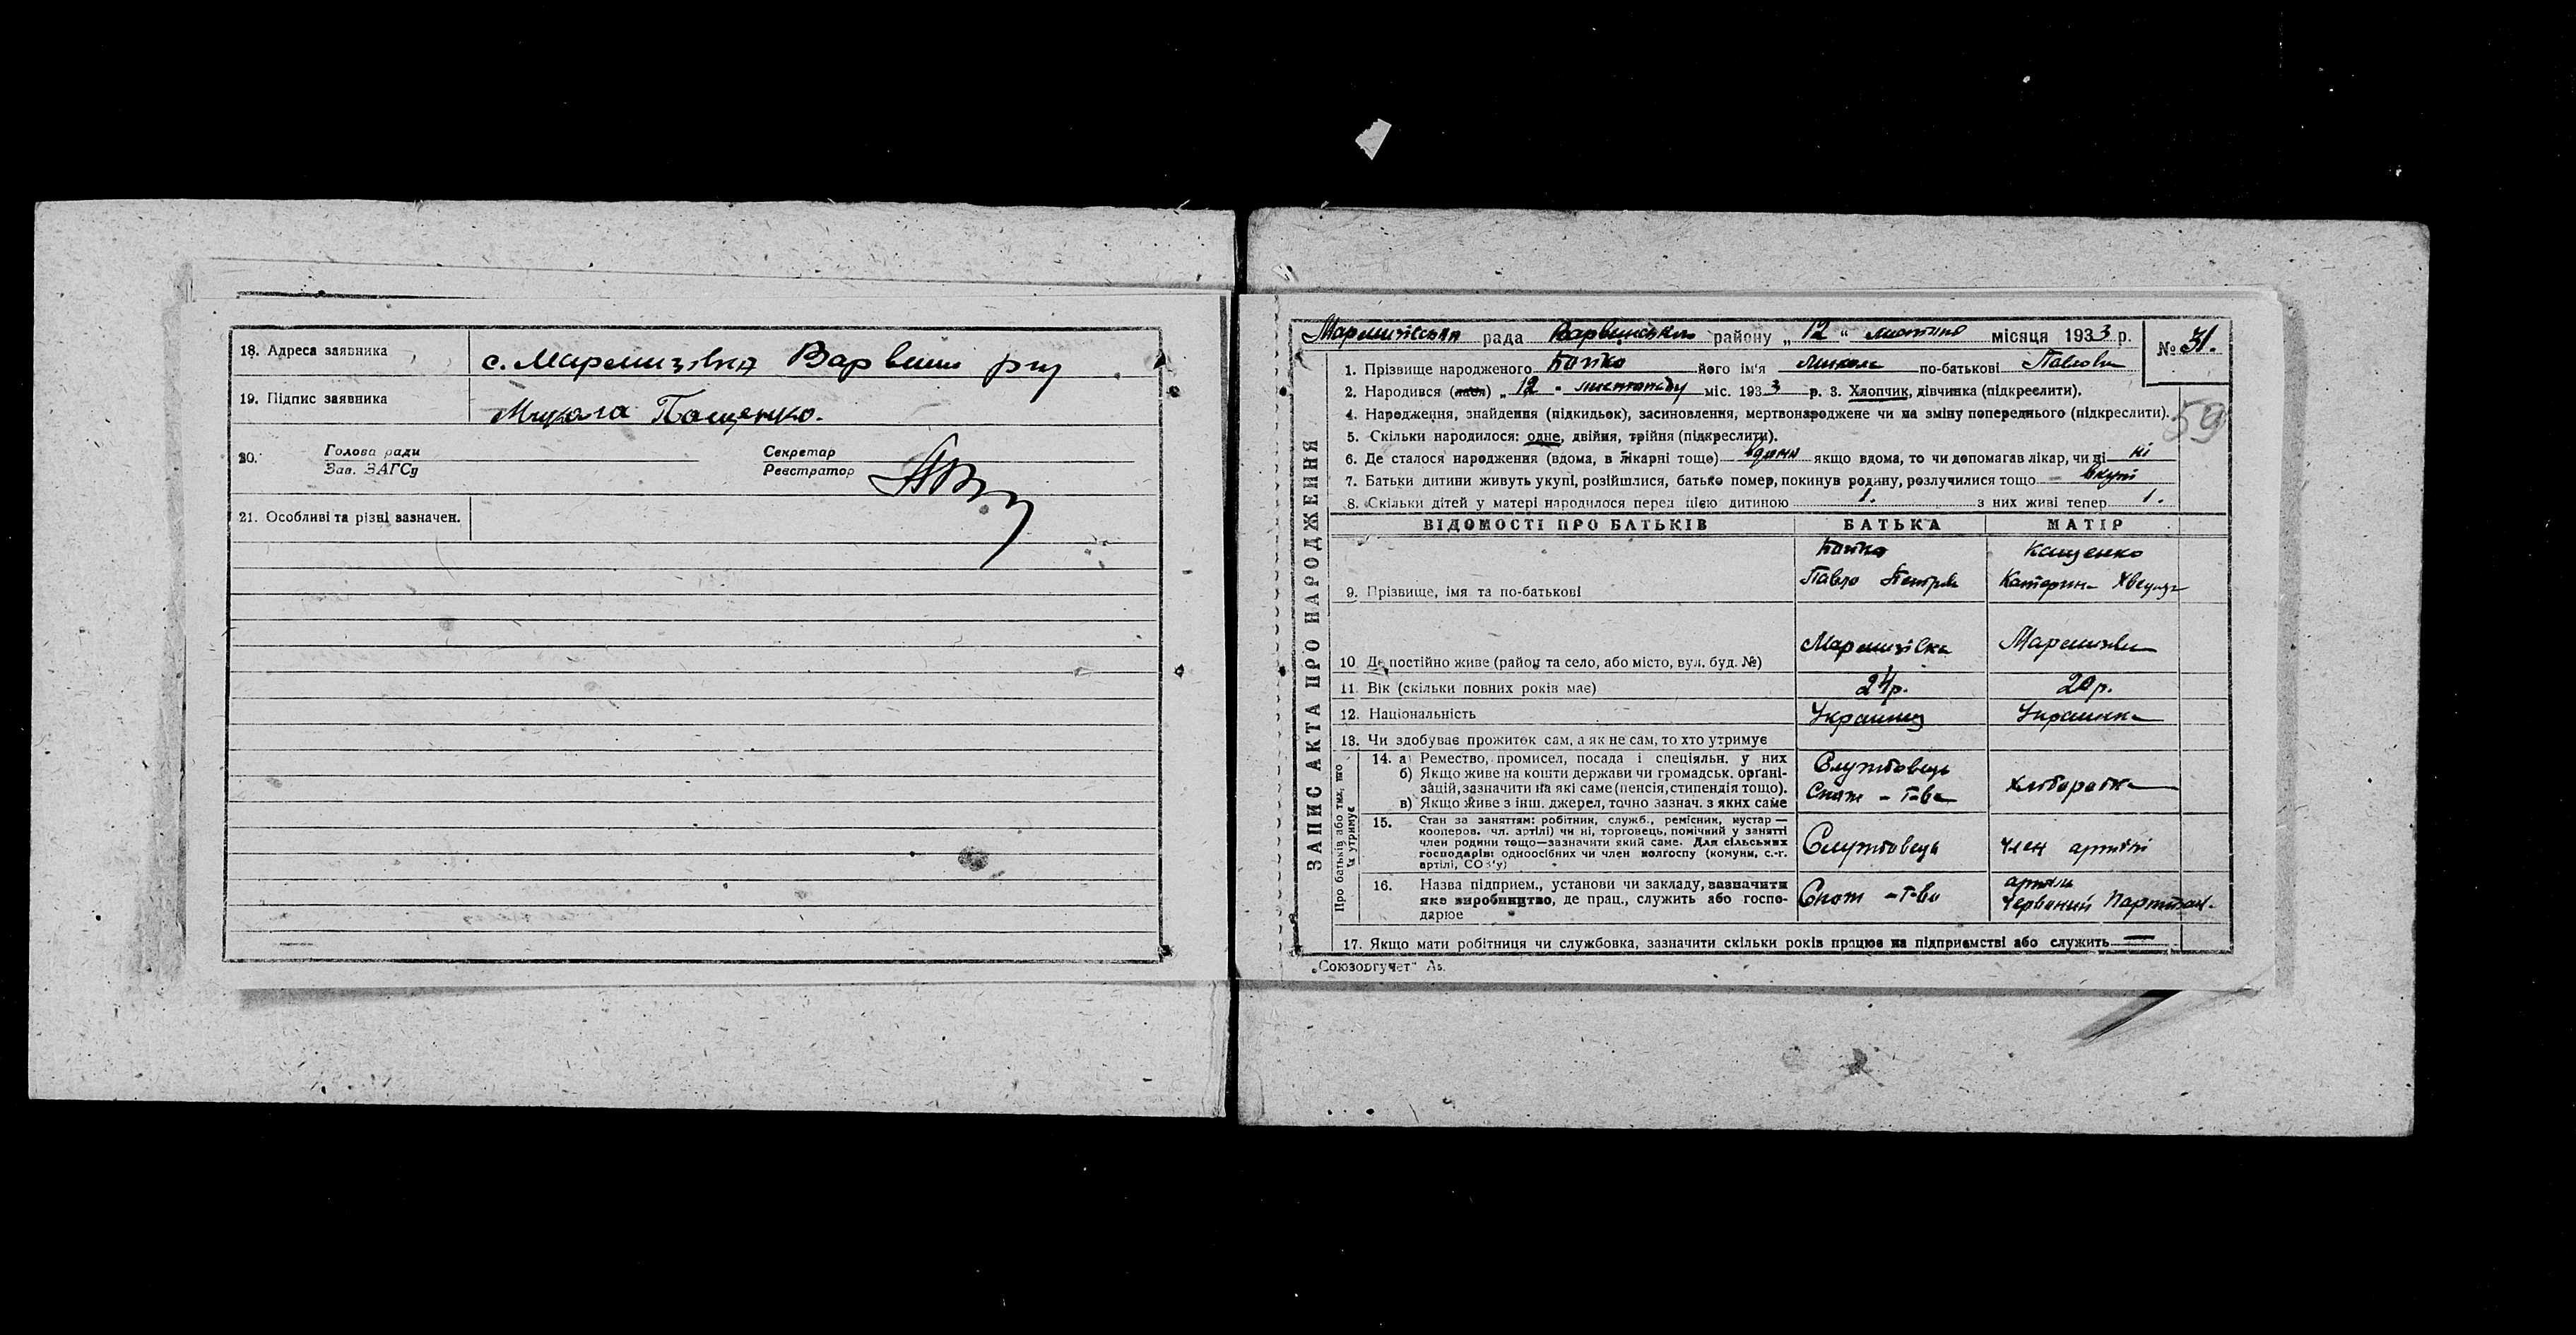 18. Адреса заявника с. Мармизівка Варвин р-ну
19. Підпис заявника Микола Пащенко.
20. Голова ради Секретар
Зав. ЗАГСу Реєстратор
21. Особливі та різні зазначен.
Мармизівська рада Варвинського району „ 12 “ листопад місяця 1933 р.
№ 31.
59
ЗАПИС АКТА ПРО НАРОДЖЕННЯ
1. Прізвище народженого Бойко його ім'я Микола по-батькові Павлов
2. Народився (лася) „ 12 “ листопаду міс. 1933 р. 3. Хлопчик, дівчинка (підкреслити).
4. Народження, знайдення (підкидьок), засиновлення, мертвонароджене чи на зміну попереднього (підкреслити).
5. Скільки народилося: одне, двійня, трійня (підкреслити).
6. Де сталося народження (вдома, в лікарні тощо) вдома якщо вдома, то чи допомагав лікар, чи ні ні
7. Батьки дитини живуть укупі, розійшлися, батько помер, покинув родину, розлучилися тощо вкупі
8. Скільки дітей у матері народилося перед цією дитиною 1. з них живі тепер 1.
ВІДОМОСТІ ПРО БАТЬКІВ БАТЬКА МАТІР
Бойко Кащенко
Павло Петров Катерина
9. Прізвище, імя та по-батькові
Мармизівка Мармизівка
10. Де постійно живе (район та село, або місто, вул. буд. №)
11. Вік (скільки повних років має) 24р. 20р.
12. Національність Украинец Украинка
13. Чи здобуває прожиток сам, а як не сам, то хто утримує
Про батьків або тих, що їх утримує
14. а) Ремество, промисел, посада і спеціяльн. у них
б) Якщо живе на кошти держави чи громадськ. органі-
зацій, зазначити на які саме (пенсія, стипендія тощо).
в) Якщо живе з інш. джерел, точно зазнач. з яких саме
Службовець
Спож - т-ва хліборобка
15. Стан за заняттям: робітник, служб., ремісник, кустар —
кооперов. чл. артілі) чи ні, торговець, помічний у занятті
член родини тощо—зазначити який саме. Для сільських
господарів: одноосібних чи член колгоспу (комуни, с.-г.
артілі, СОЗ'у)
Службовець член артілі
16. Назва підприєм., установи чи закладу, зазначити
яке виробництво, де прац., служить або госпо-
дарює
Спож - т-во артіль
Червоний Партизан.
17. Якщо мати робітниця чи службовка, зазначити скільки років працює на підприємстві або служить —
„Союзоргучет“